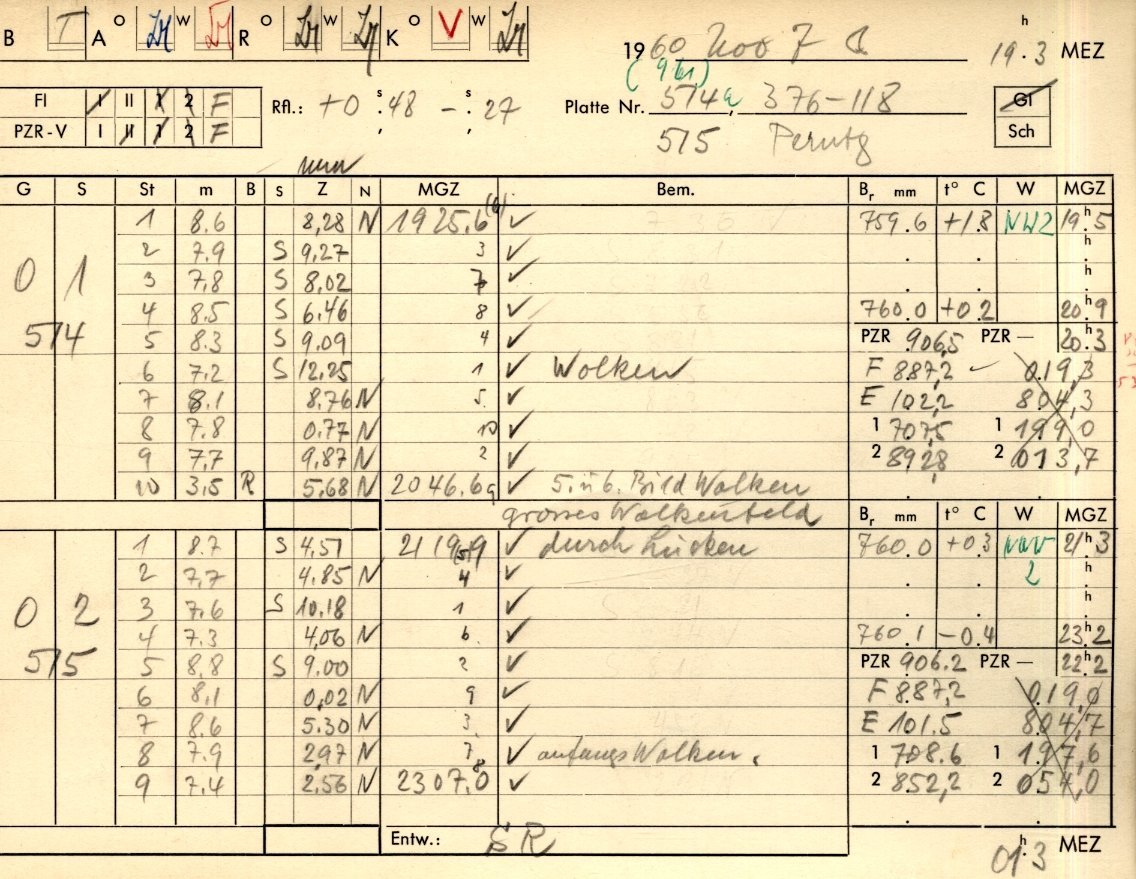 B T A O W R O W K O V W
19 60 Nov 7 19 h . 3 MEZ
(961)
FI I II 1 2 F Rfl.: +0 s .48 – s . 27 Platte Nr. 514a, 376-118 GI
PZR-V I II 1 2 F 515 Perutz Sch
G S St m B S Z N MGZ Bem. Br mm t° C W MGZ
0 1 1 8.6 8,28 N 1925.6 ✓ 759.6 +1.8 NW2 19 h 5
2 7.9 S 9,27 3 ✓ . . h
3 7,8 S 8,02 7 ✓ . . h
4 8.5 S 6.46 8 ✓ 760.0 +0.2 20 h 9
514 5 8.3 S 9,09 4 ✓ PZR 906,5 PZR – 20 h 3
6 7.2 S 12,25 1 ✓ Wolken F 887,2 019,3
7 8.1 8.76 N 5 ✓ E 102,2 804,3
8 7.8 0.77 N 10 ✓ 1 707,5 1 199,0
9 7,7 9,87 N 2 ✓ 2 892,8 2 013,7
10 3,5 R 5,68 N 2046.6 ✓ 5. u 6. Bild Wolken
grosses Wolkenfeld Br mm t° C W MGZ
0 2 1 8.7 S 4,51 2119 ✓ durch Lücken 760.0 +0.3 21 h 3
2 7,7 4.85 N 4 ✓ 2 . . h
3 7.6 S 10,18 1 ✓ . . h
4 7.3 4,06 N 6 ✓ 760.1 –0.4 23 h 2
515 5 8,8 S 9.00 2 ✓ PZR 906.2 PZR – 22 h 2
6 8,1 0,02 N 9 ✓ F 887,2 019,0
7 8.6 5.30 N 3 ✓ E 101.5 804,7
8 7.9 2,97 N 7 ✓ anfangs Wolken. 1 708.6 1 197,6
9 7.4 2,56 N 2307,0 ✓ 2 852,2 2 054,0
Entw.: SR 01 h . 3 MEZ